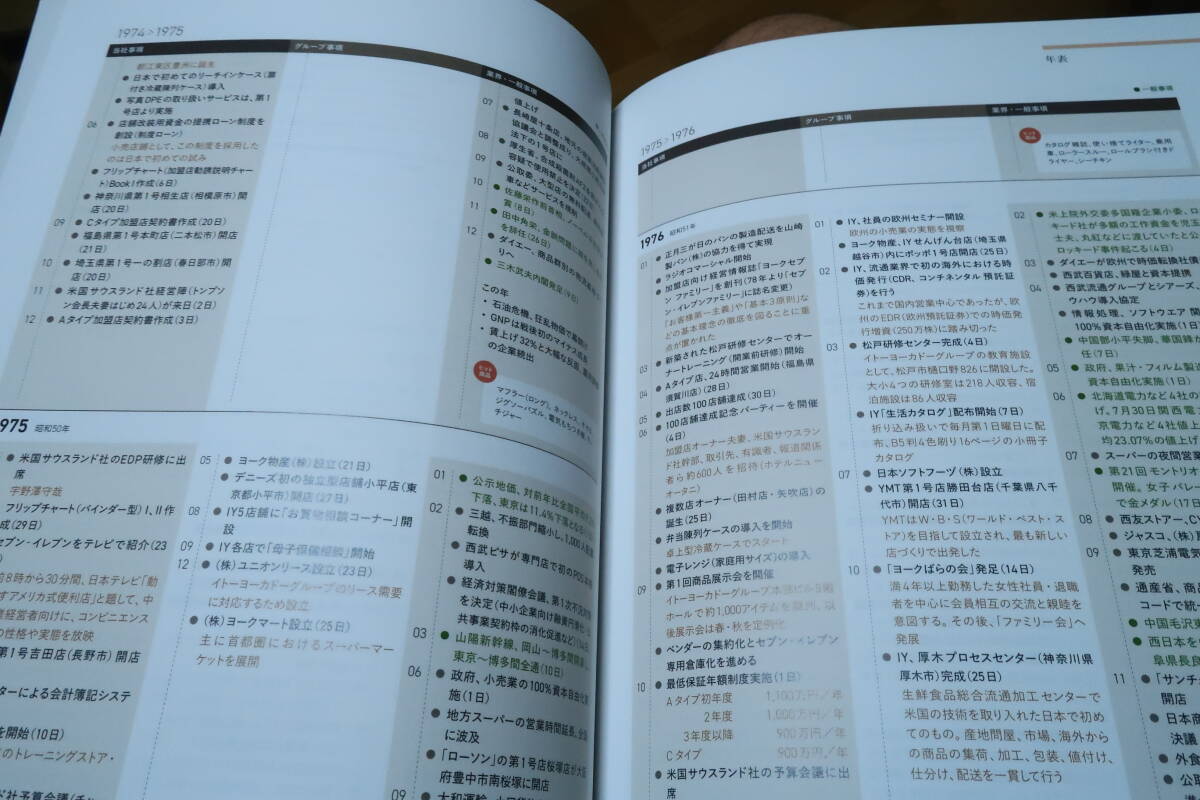 1974 > 1975
当社事項
グループ事項
業界・一般事項
都江東区豊洲に誕生
● 日本で初めてのリーチインケース(扉
付き冷蔵陳列ケース)導入
● 写真DPEの取り扱いサービスは、第1
号店より実施
06 ● 店舗改装用資金の提携ローン制度を
創設(制度ローン)
小売店舗として、この制度を採用した
のは日本で初めての試み
● フリップチャート(加盟店勧誘説明チャー
ト)Book1作成(6日)
● 神奈川県第1号相生店(相模原市)開
店(20日)
09 ● Cタイプ加盟店契約書作成(20日)
● 福島県第1号本町店(二本松市)開店
(21日)
10 ● 埼玉県第1号一の割店(春日部市)開
店(20日)
11 ● 米国サウスランド社経営陣(トンプソ
ン会長夫妻はじめ24人)が来日(2日)
12 ● Aタイプ加盟店契約書作成(3日)
07
値上げ
● 長崎屋十条店、
08
法下の1号店に
● 厚生省、合成殺菌料AF2
09
● 公取委、大型店の
車などサービスを規制
10 ● 佐藤栄作前首相、
賞(8日)
11 ● 田中角栄、金融問題
を辞任(26日)
12 ● ダイエー、商品群別の物流
りへ
● 三木武夫内閣発足(9日)
この年
・石油危機、狂乱物価で幕開け
・GNPは戦後初のマイナス成長
・賃上げ32%と大幅な反面、
の企業続出
ヒット
商品
マフラー(ロング)、ネックレス、
ジグソーパズル、電気もちつき機、
チジャー
1975 昭和50年
● 米国サウスランド社のEDP研修に出
席
宇野澤守哉
フリップチャート(バインダー型)I、II作
成(29日)
セブン-イレブンをテレビで紹介(23
前8時から30分間、日本テレビ「動
すアメリカ式便利店」と題して、中
経営者向けに、コンビニエンス
の性格や実態を放映
第1号吉田店(長野市)開店
ターによる会計簿記システ
を開始(10日)
のトレーニングストア・
ド社予算会議(チャー
05 ● ヨーク物産(株)設立(21日)
● デニーズ初の独立型店舗小平店(東
京都小平市)開店(27日)
08 ● IY5店舗に「お買物相談コーナー」開
設
09 ● IY各店で「母子保健相談」開始
12 ● (株)ユニオンリース設立(23日)
イトーヨーカドーグループのリース需要
に対応するため設立
● (株)ヨークマート設立(25日)
主に首都圏におけるスーパーマー
ケットを展開
01 ● 公示地価、対前年比全国平均
下落、東京は11.4%下落となる
02 ● 三越、不振部門縮小し、1,000人配置
転換
● 西武ピサが専門店で初のPOS
導入
● 経済対策閣僚会議、第1次不況対策
を決定(中小企業向け融資円滑化・公
共事業契約枠の消化促進など)(14日)
03 ● 山陽新幹線、岡山〜博多間開業し、
東京〜博多間全通(10日)
06 ● 政府、小売業の100%資本自由化実
施(1日)
● 地方スーパーの営業時間延長、全国
に波及
● 「ローソン」の第1号店桜塚店が大阪
府豊中市南桜塚に開店
09 ● 大和運輸、
年表
● 一般事項
1975 > 1976
当社事項
グループ事項
業界・一般事項
ヒット
商品
カタログ雑誌、使い捨てライター、乗用
車、ローラースルー、ロールブラシ付きド
ライヤー、シーチキン
1976 昭和51年
01 ● 正月三が日のパンの製造配送を山崎
製パン(株)の協力を得て実現
● ラジオコマーシャル開始
● 加盟店向け経営情報誌「ヨークセブ
ン ファミリー」を創刊(78年より「セブ
ン-イレブンファミリー」に誌名変更)
「お客様第一主義」や「基本3原則」な
どの基本理念の徹底を図ることに重
点が置かれた
03 ● 新築された松戸研修センターでオー
ナートレーニング(開業前研修)開始
04 ● Aタイプ店、24時間営業開始(福島県
須賀川店)(28日)
05 ● 出店数100店達成(30日)
06 ● 100店舗達成記念パーティーを開催
(4日)
加盟店オーナー夫妻、米国サウスラン
ド社幹部、取引先、有識者、報道関係
者ら約600人を招待(ホテルニュー
オータニ)
● 複数店オーナー(田村店・矢吹店)の
誕生(25日)
● 弁当陳列ケースの導入を開始
卓上型冷蔵ケースでスタート
● 電子レンジ(家庭用サイズ)の導入
09 ● 第1回商品展示会を開催
イトーヨーカドーグループ本部ビル5階
ホールで約1,000アイテムを展示、以
後展示会は春・秋を定例化
● ベンダーの集約化とセブン-イレブン
専用倉庫化を進める
10 ● 最低保証年額制度実施(1日)
Aタイプ初年度 1,100万円/年
2年度 1,000万円/年
3年度以降 900万円/年
Cタイプ 900万円/年
● 米国サウスランド社の予算会議に出
席
01 ● IY、社員の欧州セミナー開設
欧州の小売業の実態を視察
● ヨーク物産、IYせんげん台店(埼玉県
越谷市)内にポッポ1号店開店(25日)
02 ● IY、流通業界で初の海外における時
価発行(CDR、コンチネンタル預託証
券)を行う
これまで国内営業中心であったが、欧
州のEDR(欧州預託証券)での時価発
行増資(250万株)に踏み切った
03 ● 松戸研修センター完成(4日)
イトーヨーカドーグループの教育施設
として、松戸市樋口野826に開設した。
大小4つの研修室は218人収容、宿
泊施設は86人収容
● IY「生活カタログ」配布開始(7日)
折り込み扱いで毎月第1日曜日に配
布、B5判4色刷り16ページの小冊子
カタログ
07 ● 日本ソフトフーヅ(株)設立
● YMT第1号店勝田台店(千葉県八千
代市)開店(31日)
YMTはW・B・S(ワールド・ベスト・ス
トア)を目指して設立され、最も新しい
店づくりで出発した
10 ● 「ヨークばらの会」発足(14日)
満4年以上勤務した女性社員・退職
者を中心に会員相互の交流と親睦を
意図する。その後、「ファミリー会」へ
発展
● IY、厚木プロセスセンター(神奈川県
厚木市)完成(25日)
生鮮食品総合流通加工センターで
米国の技術を取り入れた日本で初め
てのもの。産地問屋、市場、海外から
の商品の集荷、加工、包装、値付け、
仕分け、配送を一貫して行う
02 ● 米上院外交委多国籍企業小委、ロ
キード社が多額の工作資金を児玉
士夫、丸紅などに渡していたと公
ロッキード事件起こる(4日)
03 ● ダイエーが欧州で時価転換社債
● 西武百貨店、緑屋と資本提携
04 ● 西武流通グループとシアーズ、
ウハウ導入協定
● 情報処理、ソフトウエア開
100%資本自由化実施(1日)
● 中国鄧小平失脚、華国鋒が
任(7日)
05 ● 政府、果汁・フィルム製造
資本自由化実施(1日)
06 ● 北海道電力など4社の
げ。7月30日関西電
京電力など4社値上
均23.07%の値上げ
07 ● スーパーの夜間営業
● 第21回モントリオ
開催。女子バレー
で金メダル(17日
08 ● 西友ストアー、
● ジャスコ、(株)
09 ● 東京芝浦電気
発売
● 通産省、商
コードで統
● 中国毛沢東
● 西日本を
阜県長良
11 ● 「サンチ
開店
● 日本商
決議
● 外食
● 公取